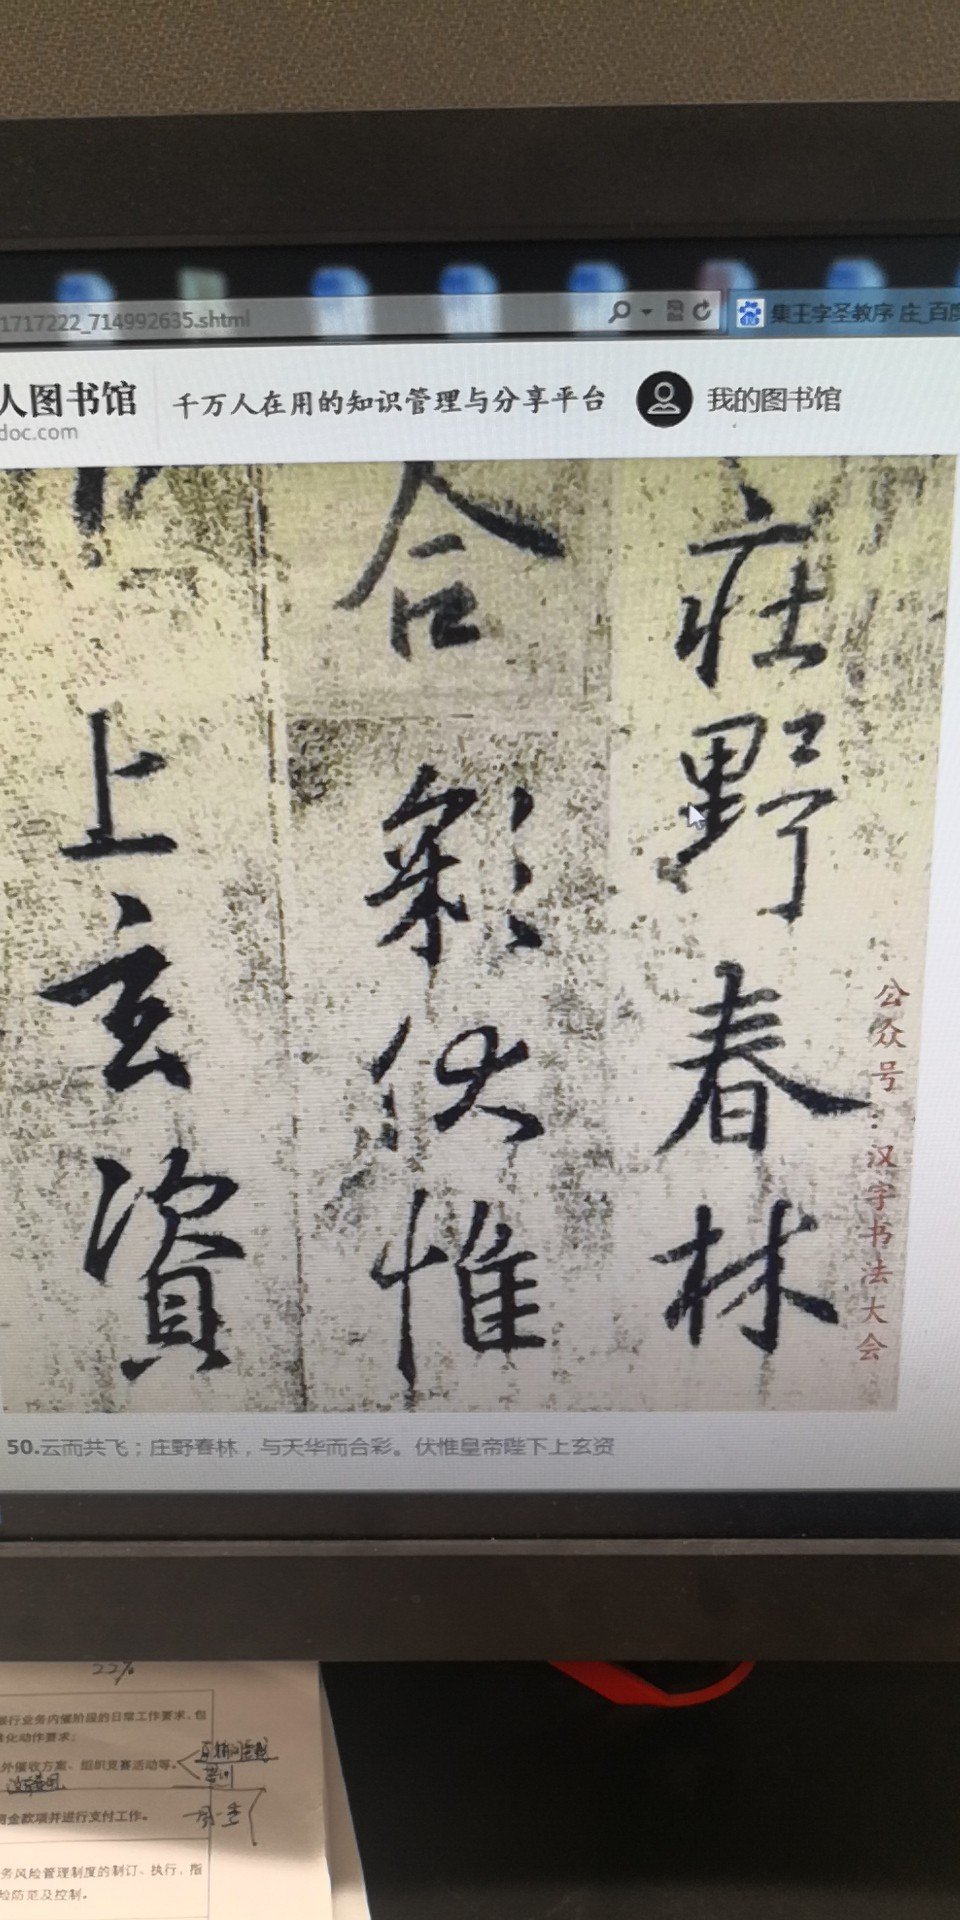 1717222_714992635.shtml
集王字圣教序 庄_百度
人图书馆
doc.com
千万人在用的知识管理与分享平台
我的图书馆
庄野春林
合彩伏惟
上玄資
公众号：汉字书法大会
50.云而共飞；庄野春林，与天华而合彩。伏惟皇帝陛下上玄资
22%
银行业务内催阶段的日常工作要求，包
准化动作要求；
外催收方案、组织竞赛活动等。
培训
佣金款项并进行支付工作。
务风险管理制度的制订、执行，指
险防范及控制。